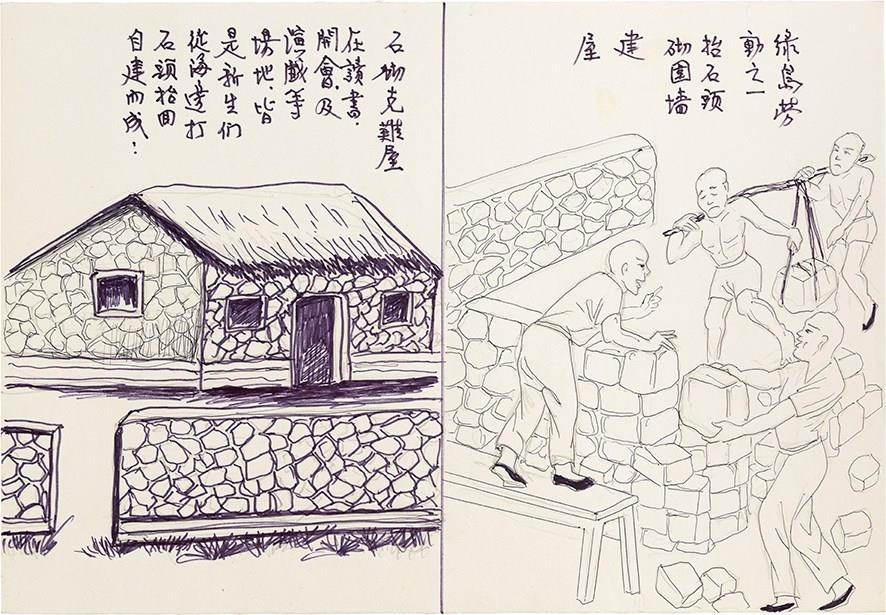 綠島勞
動之一
抬石頭
砌圍墻
建
屋
石砌克難屋
在讀書.
開會.及
演戲等
場地.皆
是新生們
從海邊打
石頭抬回
自建而成!